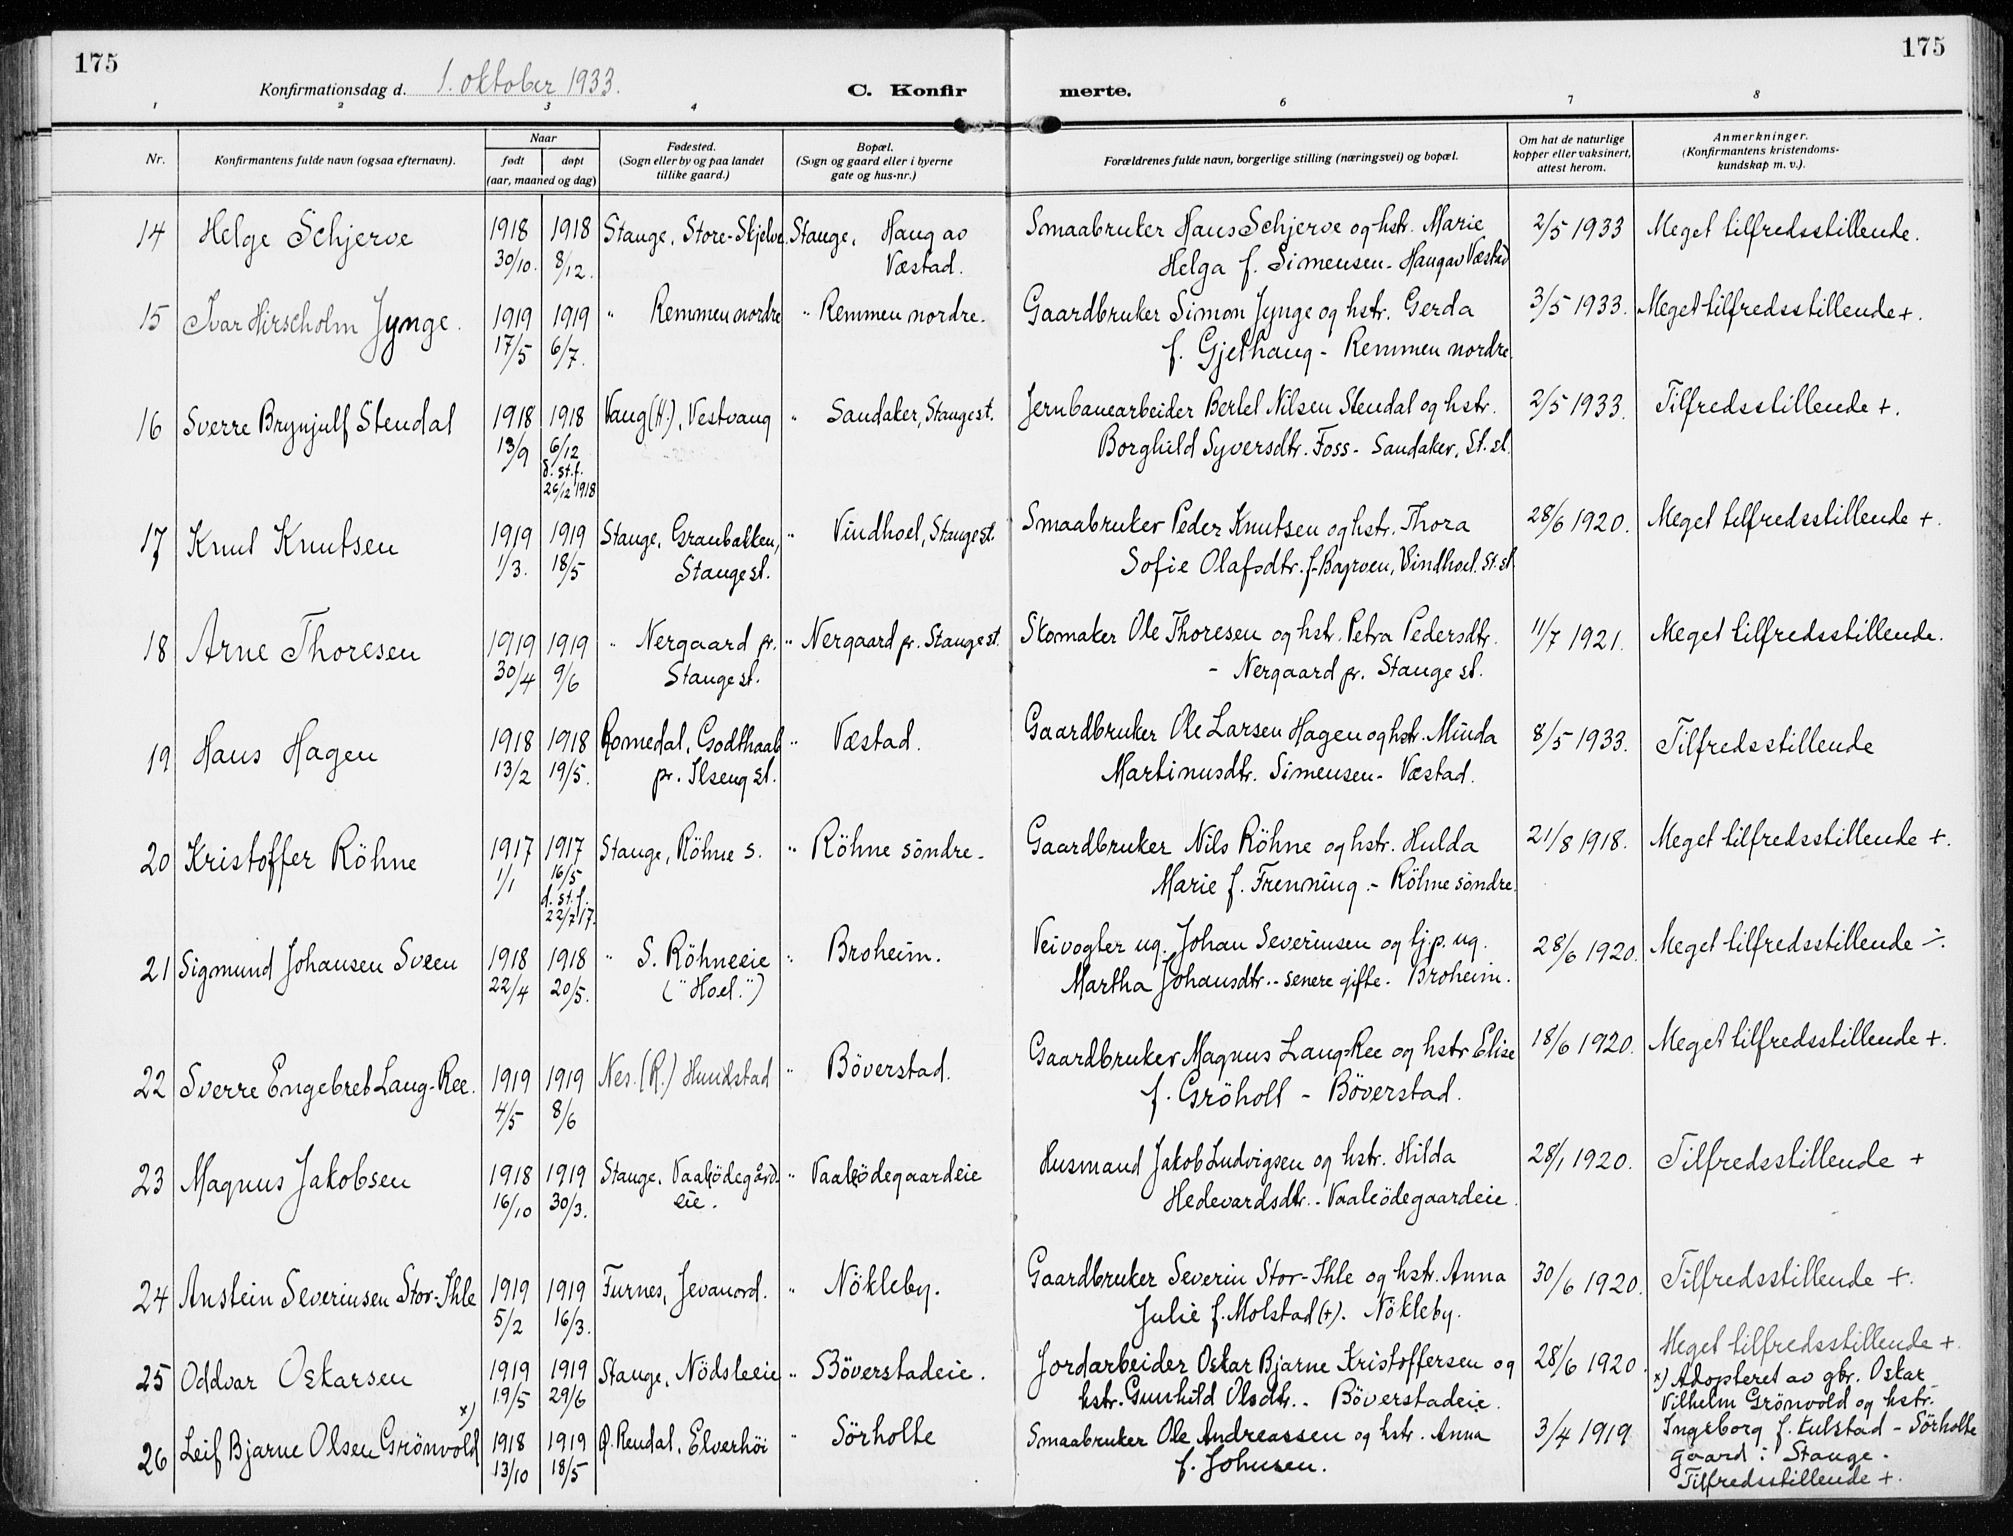 175
175
Konfirmationsdag d. 1. oktober 1933.
C. Konfir
merte.
1 2 3 4 6 7 8
Nr.
Konfirmantens fulde navn (ogsaa efternavn).
Naar
født
døpt
(aar, maaned og dag)
Fødested.
(Sogn eller by og paa landet
tillike gaard.)
Bopæl.
(Sogn og gaard eller i byerne
gate og hus-nr.)
Forældrenes fulde navn, borgerlige stilling (næringsvei) og bopæl.
Om hat de naturlige
kopper eller vaksinert,
attest herom.
Anmerkninger.
(Konfirmantens kristendoms-
kundskap m. v.).
14 Helge Schjerve 1918 1918 Stange, Store-Skjelve. Stange, Haug av Smaabruker Hans Schjerve og hstr. Marie 2/5 1933 Meget tilfredsstillende.
30/10. 8/12. Væstad. Helga f. Simensen - Haug av Væstad
15 Ivar Hirscholm Jynge. 1919 1919 " Remmen nordre " Remmen nordre. Gaardbruker Simon Jynge og hstr. Gerda 3/5 1933. Meget tilfredsstillende +.
17/5 6/7. f. Gjelhaug - Remmen nordre.
16 Sverre Brynjulf Stendal 1918 1918 Vang (H.), Vestvang " Sandaker, Stange st. Jernbanearbeider Bertel Nilsen Stendal og hstr. 2/5 1933. Tilfredsstillende +.
13/9 6/12 Borghild Syversdtr. Foss - Sandaker, St. st.
d. st. f.
26/12 1918
17 Knut Knutsen 1919 1919 Stange, Granbakken, " Vindhoel, Stange st. Smaabruker Peder Knutsen og hstr. Thora 28/6 1920. Meget tilfredsstillende +.
1/3. 18/5 Stange st. Sofie Olafsdtr. f. Bagroen, Vindhoel. St. st.
18 Arne Thoresen 1919 1919 " Nergaard pr. " Nergaard pr. Stange st. Skomaker Ole Thoresen og hstr. Petra Pedersdtr. 11/7 1921. Meget tilfredsstillende.
30/4 9/6 Stange st. - Nergaard pr. Stange st.
19 Hans Hagen 1918 1918 Romedal, Godthaab " Væstad. Gaardbruker Ole Larsen Hagen og hstr. Minda 8/5 1933. Tilfredsstillende
13/2 19/5. pr. Ilseng st. Martinusdtr. Simensen - Væstad.
20 Kristoffer Röhne 1917 1917 Stange, Röhne s. " Röhne söndre. Gaardbruker Nils Röhne og hstr. Hulda 21/8 1918. Meget tilfredsstillende +.
1/1 16/5 Marie f. Frenning. - Röhne söndre.
d. st. f.
22/7 17.
21 Sigmund Johansen Sveen 1918 1918 " S. Röhneeie " Broheim. Veivogter ug. Johan Severinsen og tj.p. ug. 28/6 1920. Meget tilfredsstillende ÷.
22/4 20/5. ("Hoel.") Martha Johansdtr. - senere gifte. Broheim.
22 Sverre Engebret Lang-Ree. 1919 1919 Nes. (R.) Hundstad " Böverstad. Gaardbruker Magnus Lang-Ree og hstr Elise 18/6 1920. Meget tilfredsstillende +.
4/5 8/6 f. Gröholt - Böverstad.
23 Magnus Jakobsen 1918 1919 Stange, Vaaleödegård- " Vaaleödegaardeie Husmand Jakob Ludvigsen og hstr. Hilda 28/1 1920. Tilfredsstillende +
16/10 30/3. eie. Hedevardsdtr. - Vaaleödegaardeie.
24 Anstein Severinsen Stor-Ihle 1919 1919 Furnes, Jevanord. " Nökleby. Gaardbruker Severin Stor-Ihle og hstr. Anna 30/6 1920. Tilfredsstillende +.
5/2 16/3. Julie f. Molstad (+). Nökleby.
25 Oddvar Oskarsen 1919 1919 Stange, Nödsleeie " Böverstadeie. Jordarbeider Oskar Bjarne Kristoffersen og 28/6 1920. Meget tilfredsstillende +.
19/5 29/6 hstr. Gunhild Olsdtr. - Böverstadeie.
x) Adopteret av gbr. Oskar
Vilhelm Grönvold og hstr.
26 Leif Bjarne Olsen Grönvold x) 1918 1919 Ø. Rendal, Elverhöi " Sörholte Smaabruker Ole Andreassen og hstr. Anna 3/4 1919 Ingeborg f. Kulstad - Sörholte
13/10 18/5 f. Johnsen. gaard i Stange.
Tilfredsstillende +.